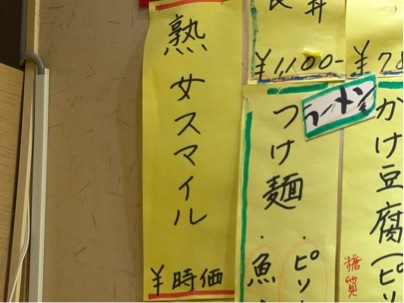 熟女スマイル
¥時価
丼
¥1100-
¥78
ラーメン
つけ麺・魚
・ピソ
かけ豆腐(ピ
糖質